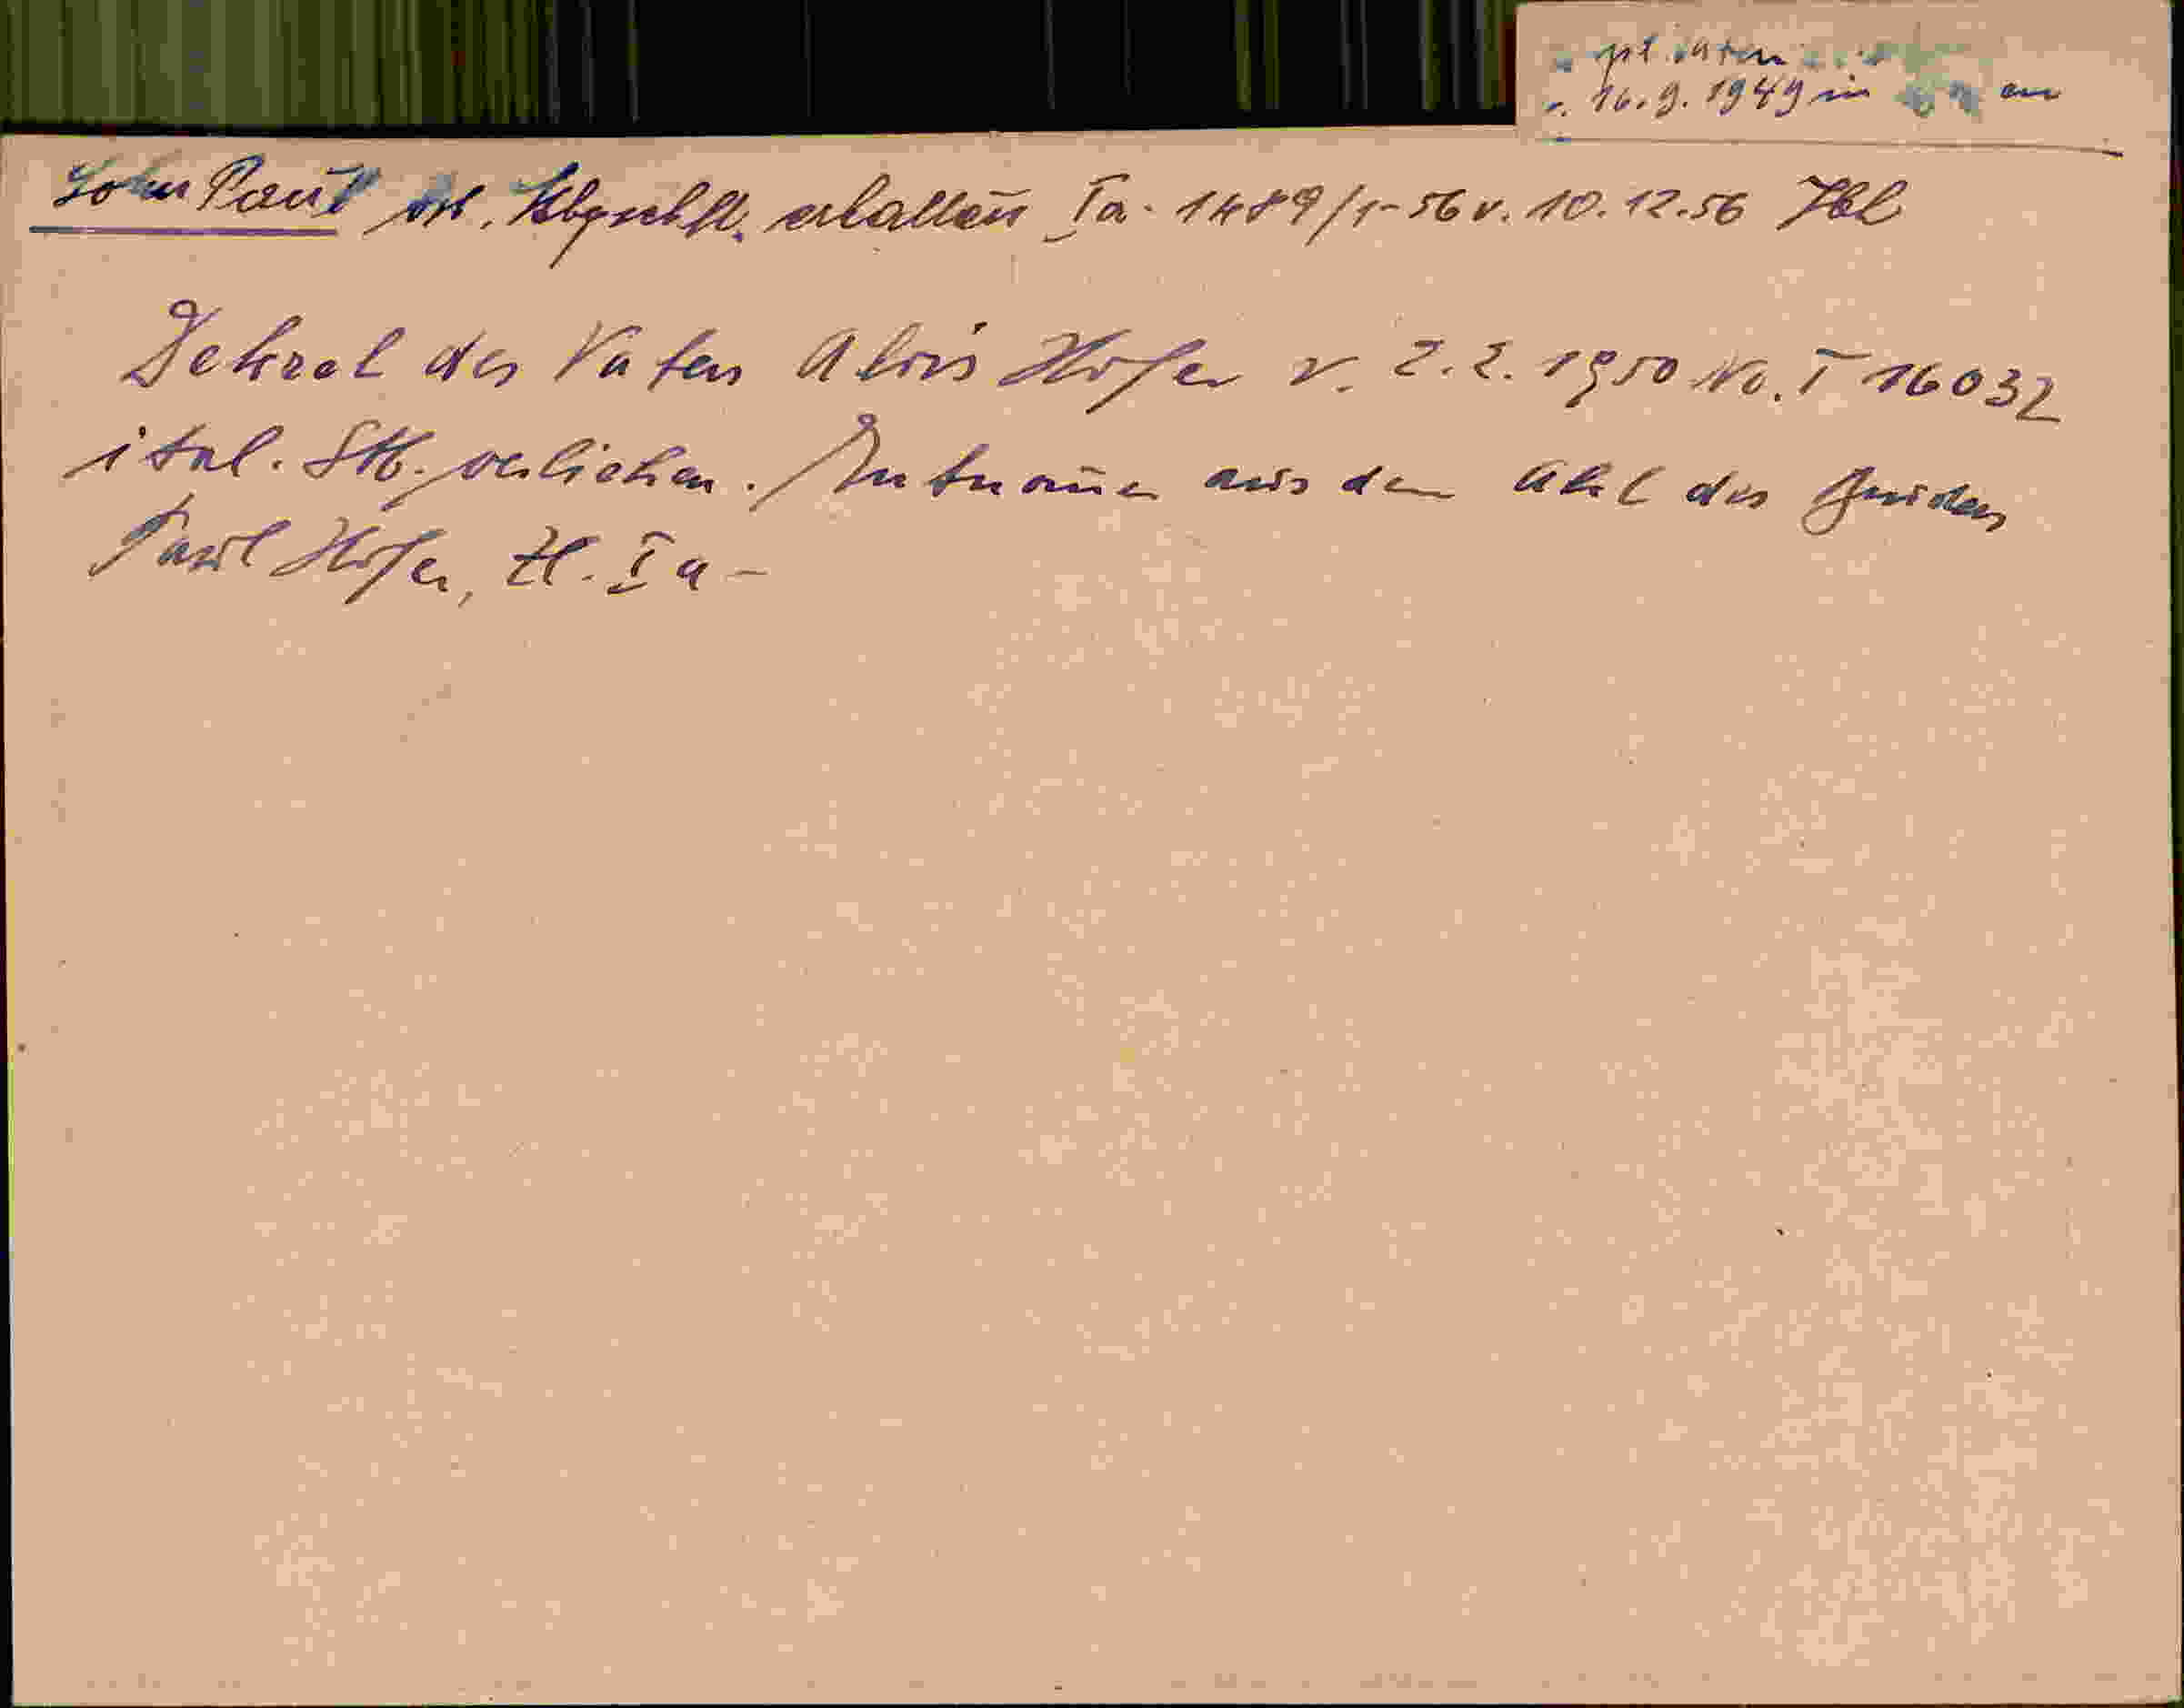 16.9.1949 in
Sohn Paul öst. Stbgschft. erhalten Ia- 1489/1-56 v. 10.12.56
Dekret des Vaters Alois Hofer v. 2.2.1950 No. I 16032
ital. Stb. verliehen. / Entnom̄en aus dem Akt des Bruders
Paul Hofer, Zl. Ia-